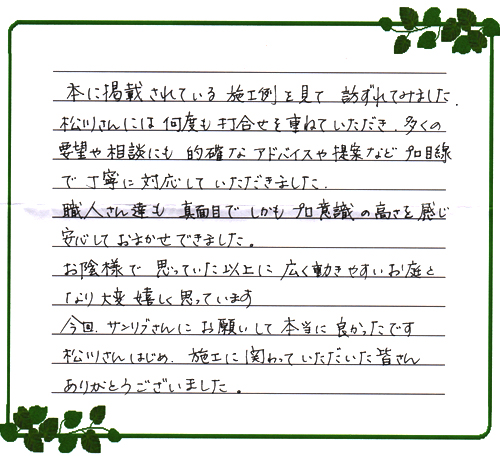 本に掲載されている施工例を見て 訪ずれてみました.
松川さんには何度も打合せを重ねていただき、多くの
要望や相談にも的確なアドバイスや提案など プロ目線
で丁寧に対応していただきました.
職人さん達も真面目でしかもプロ意識の高さを感じ
安心しておまかせできました。
お陰様で思っていた以上に広く動きやすいお庭と
なり大変嬉しく思っています
今回、サンリブさんにお願いして本当に良かったです
松川さんはじめ、施工に関わっていただいた皆さん
ありがとうございました。